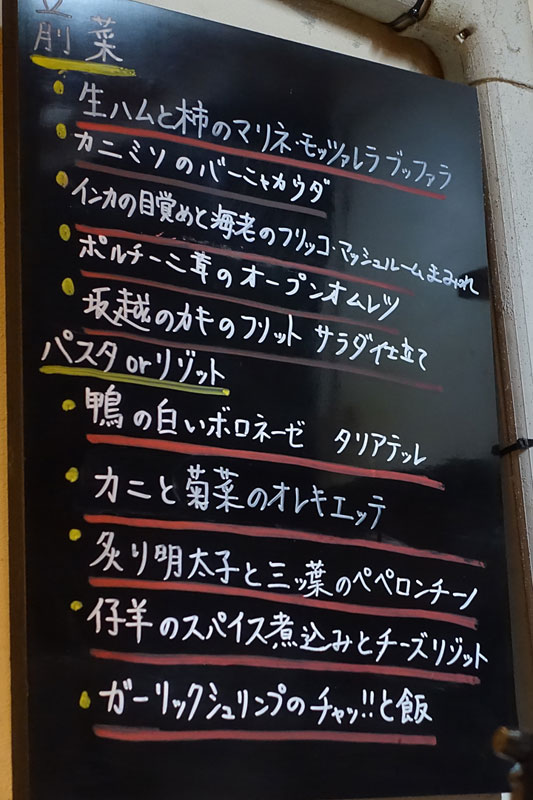 前菜
生ハムと柿のマリネ・モッツァレラ ブッファラ
カニミソのバーニャカウダ
インカの目覚めと海老のフリッコ・マッシュルームまみれ
ポルチーニ茸のオープンオムレツ
坂越のカキのフリット サラダ仕立て
パスタorリゾット
鴨の白いボロネーゼ タリアテッレ
カニと菊菜のオレキエッテ
炙り明太子と三ッ葉のペペロンチーノ
仔羊のスパイス煮込みとチーズリゾット
ガーリックシュリンプのチャッ!!と飯